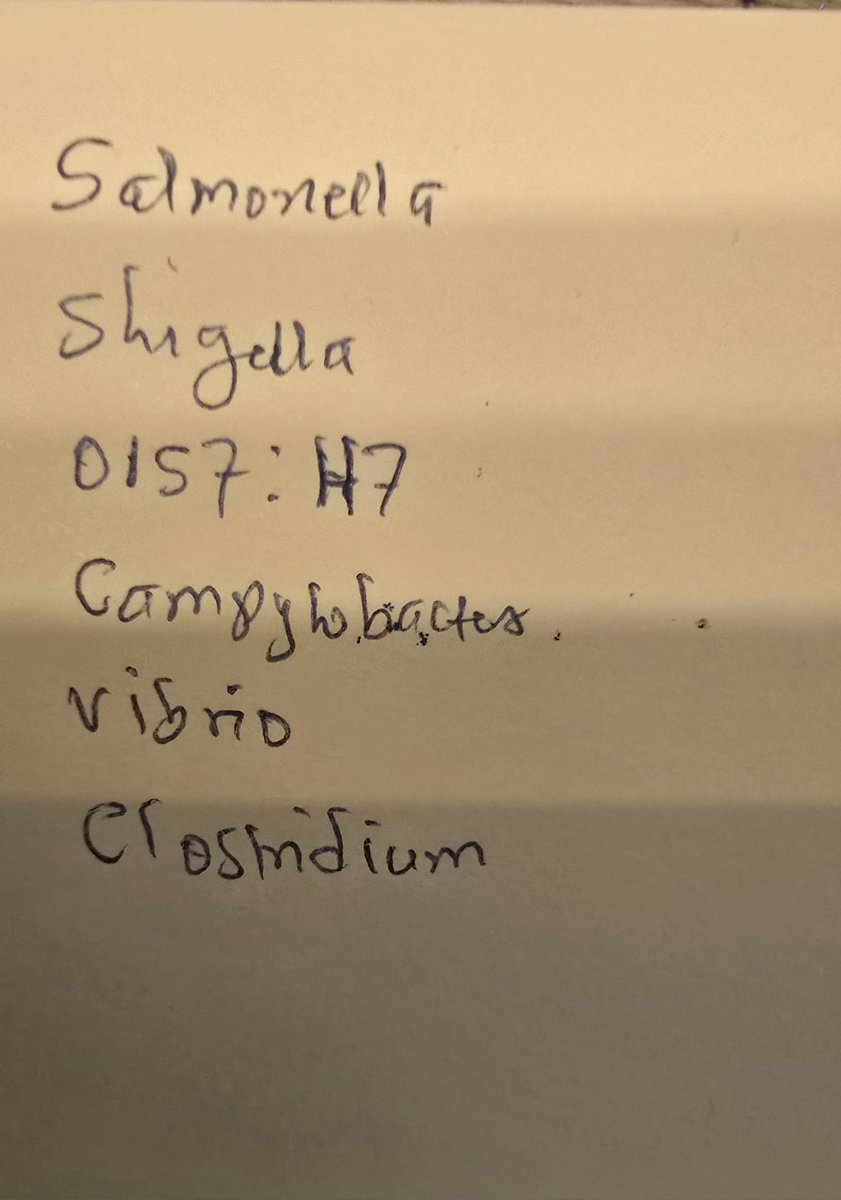 Salmonella
Shigella
0157: H7
Campylobacter.
Vibrio
Clostridium